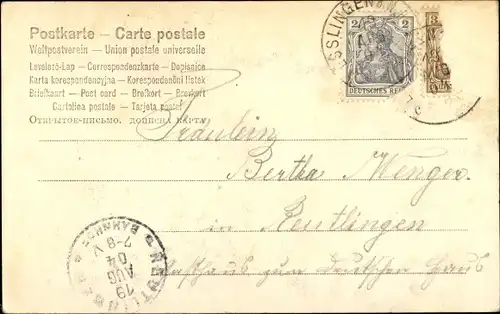 Postkarte — Carte postale
Weltpostverein — Union postale universelle
Levelező-Lap — Correspondenzkarte — Dopisnice
Karta korespondencyjna — Korespondenční lístek
Briefkaart — Post card — Brefkort — Brevkort
Cartolina postale — Tarjeta postal
Открытое письмо. дописна карта
ESSLINGEN
2 2
DEUTSCHES REICH
Fräulein
Bertha Wenger
in Reutlingen
Gasthaus zum deutschen Haus
REUTLINGEN
BAHNHOF
19
AUG
04
7-8 V